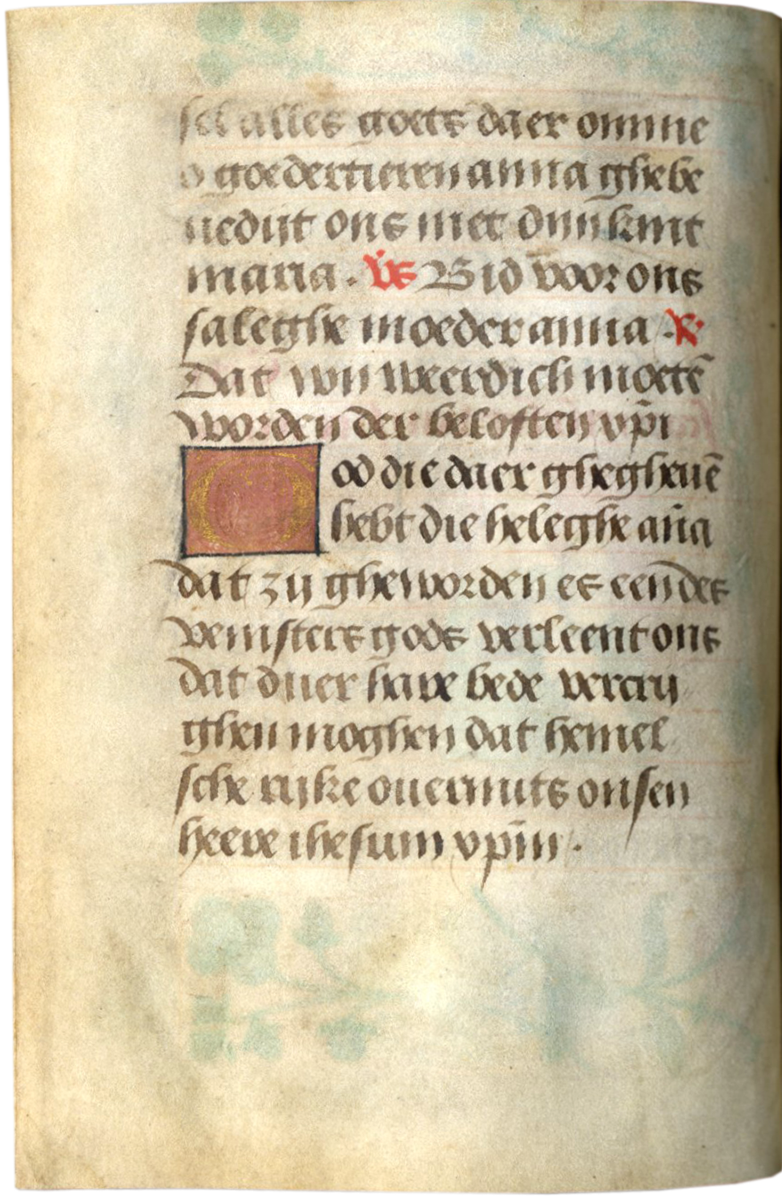 sel alles goets daer omme
o goedertieren anna ghebe
nedijt ons met dijn kint
maria . v̇s Bid voor ons
saleghe moeder anna . ꝶ
Dat wij weerdich moetē
worden der beloften xp̄i
God die daer ghegheuē
hebt die heleghe an̄a
dat zij gheworden es een des
venisters gods verleent ons
dat duer hare bede vercrij
ghen moghen dat hemel
sche rijke ouermits onsen
heere ihesum xp̄m .